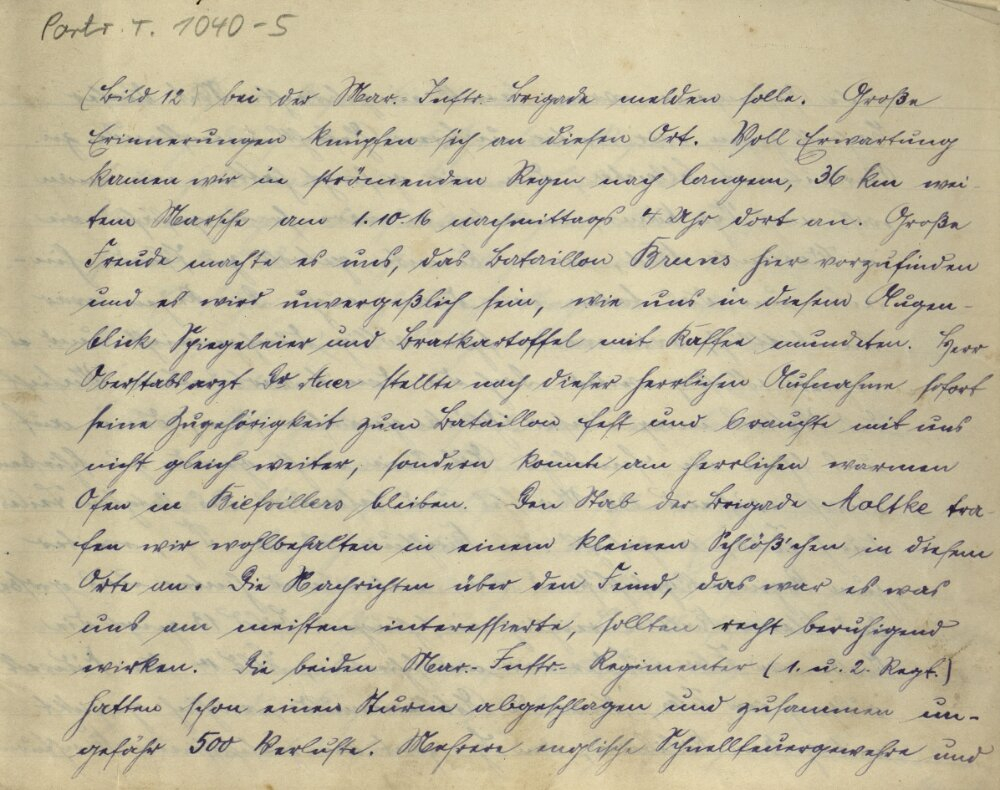 Portr. T. 1040-5
(Bild 12) bei der Mar.-Inftr.-Brigade melden solle. Große
Erinnerungen knüpfen sich an diesen Ort. Voll Erwartung
kamen wir in strömenden Regen nach langem, 36 km wei-
tem Marsche am 1.10.16 nachmittags 4 Uhr dort an. Große
Freude machte es uns, das Bataillon Bruns hier vorzufinden
und es wird unvergeßlich sein, wie uns in diesem Augen-
blick Spiegeleier und Bratkartoffel mit Kaffee mundeten. Herr
Oberstabsarzt Dr Auer stellte nach dieser herrlichen Aufnahme sofort
seine Zugehörigkeit zum Bataillon fest und brauchte mit uns
nicht gleich weiter, sondern konnte am herrlichen warmen
Ofen in Biefvillers bleiben. Den Stab der Brigade Moltke tra-
fen wir wohlbehalten in einem kleinen Schlöß'chen in diesem
Orte an. Die Nachrichten über den Feind, das war es was
uns am meisten interessierte, sollten recht beruhigend
wirken. Die beiden Mar.-Inftr.-Regimenter (1. u. 2. Regt.)
hatten schon einen Sturm abgeschlagen und zusammen un-
gefähr 500 Verluste. Mehrere englische Schnellfeuergewehre und